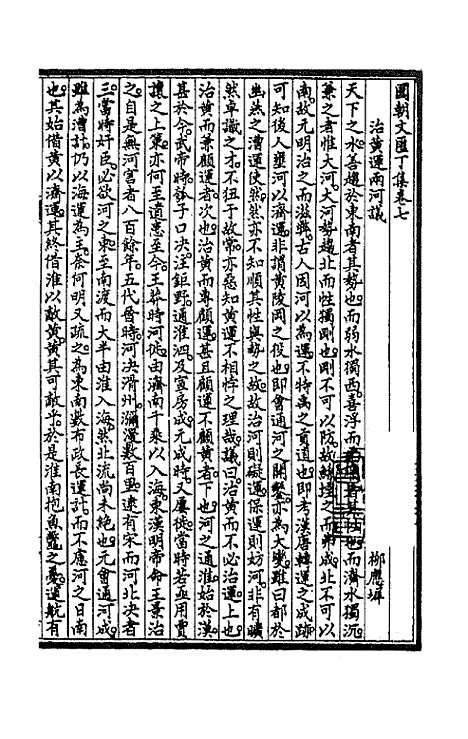 國朝文匯丁集卷七
治黃運兩河議
柳應墀
天下之水善趨於東南者其勢也而弱水獨西喜浮而 者其性也而濟水獨沉
兼之者惟大河大河勢趨北而性獨剛也剛不可以防故鯀堙之而 成北不可以
南故元明治之而滋弊古人因河以為運不特禹之貢道也即考漢唐轉運之成跡
可知後人壅河以濟運非謂黃陵岡之役也即會通河之開鑿亦為大變雖曰都於
幽燕之漕運使然然亦不知順其性與勢之故故治河則礙運保運則妨河非有曠
然卓識之才不狃于故常亦惡知黃運不相悖之理哉議曰治黃而不必治運上也
治黃而兼顧運者次也治黃而專顧運甚且顧運不顧黃者下也河之通淮始於漢
甚於今武帝時瓠子口決注鉅野通淮泗及宣房成元成時又屢徙當時若亟用賈
讓之上策亦何至遺患至今王莽時河徙由濟南千乘以入海東漢明帝命王景治
之自是無河害者八百餘年五代晉時河決滑州瀰漫數百里逮有宋而河北決者
三當時奸臣必欲河之東至南渡而大半由淮入海然北流尚未絕也元會通河成
雖為漕計仍以海運為主奈何明又疏之為東南數布政長運計而不應河之日南
也其始借黃以濟運其終借淮以敵黃黃其可敵乎於是淮南抱魚鼈之憂運航有